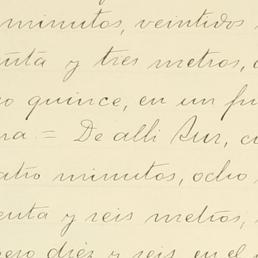 minutos, veintidos
enta y tres metros,
quince, en un
= De alli Sur,
atro minutos, ocho
enta y seis metros,
diez y seis, en el